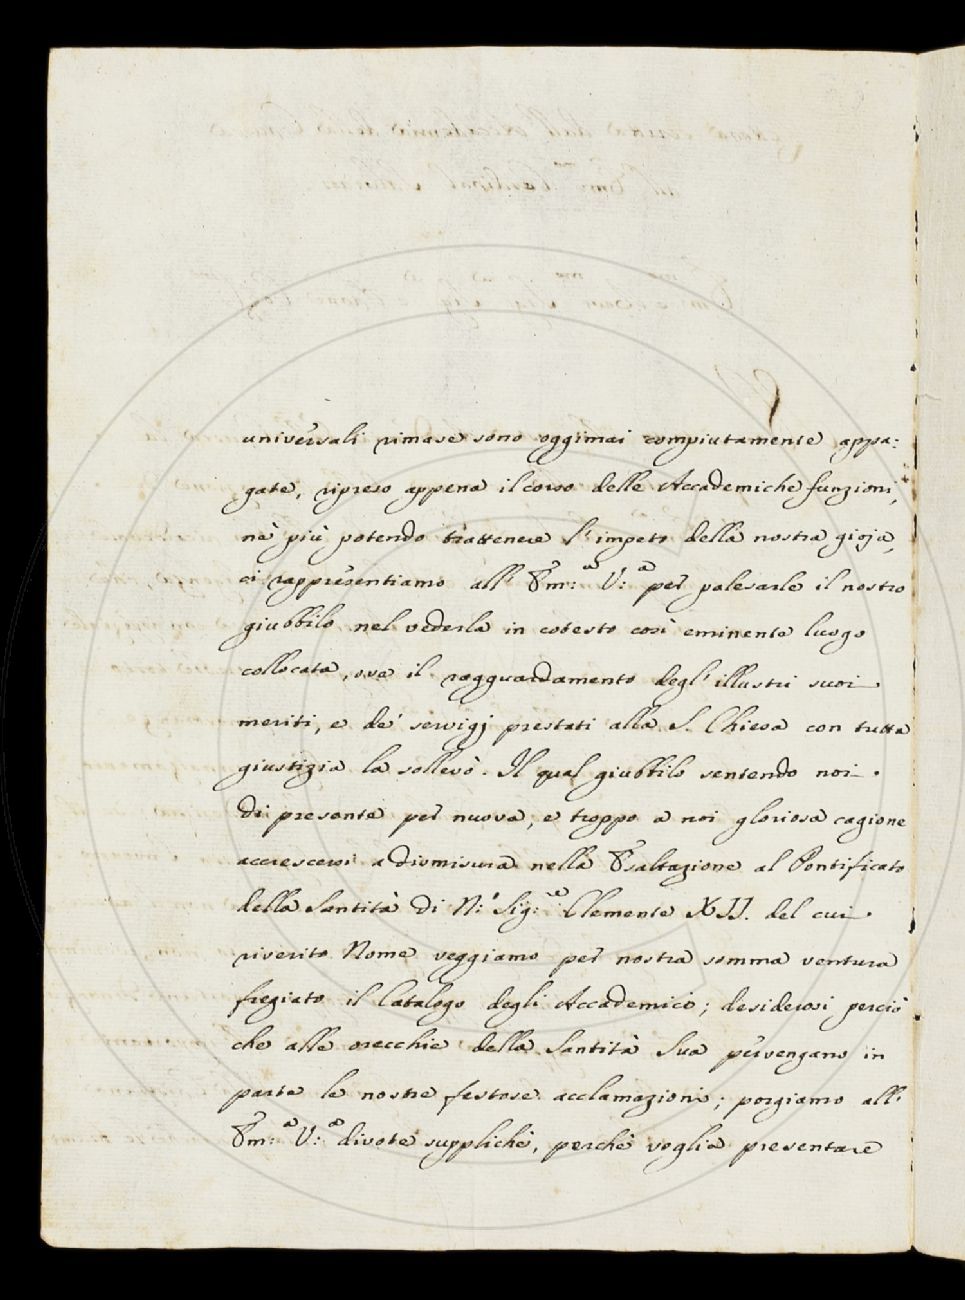 universali rimase sono oggimai compiutamente appa:
gate, ripreso appena il corso delle Accademiche funzioni,
nè più potendo trattenere l'impeto della nostra gioja,
ci rappresentiamo all' Em:a V:a per palesarle il nostro
giubbilo nel vederla in cotesto così eminente luogo
collocata, ove il ragguardamento degl'illustri suoi
meriti, e de' servigj prestati alla S. Chiesa con tutta
giustizia la sollevò. Il qual giubbilo sentendo noi
di presente per nuova, e troppo a noi gloriosa cagione
accrescersi a dismisura nella Esaltazione al Pontificato
della Santità di N:' Sig:re Clemente XII. del cui
riverito Nome veggiamo per nostra somma ventura
fregiato il Catalogo degli Accademici; desiderosi perciò
che alle orecchie della Santità Sua pervengano in
parte le nostre festose acclamazioni; porgiamo all'
Em:a V:a divote suppliche, perchè voglia presentare